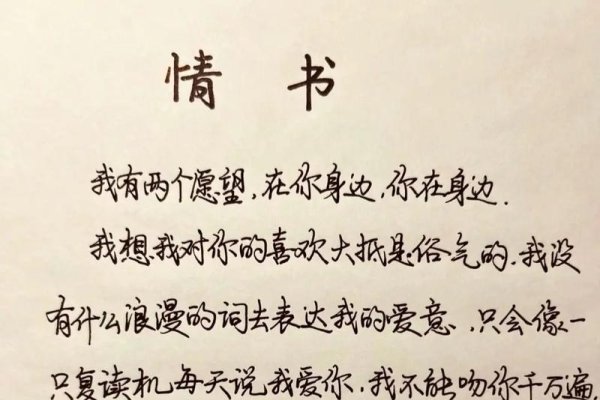 情书
我有两个愿望,在你身边,你在身边.
我想我对你的喜欢大抵是俗气的.我没
有什么浪漫的词去表达我的爱意,只会像一
只复读机每天说我爱你,我不能吻你千万遍,